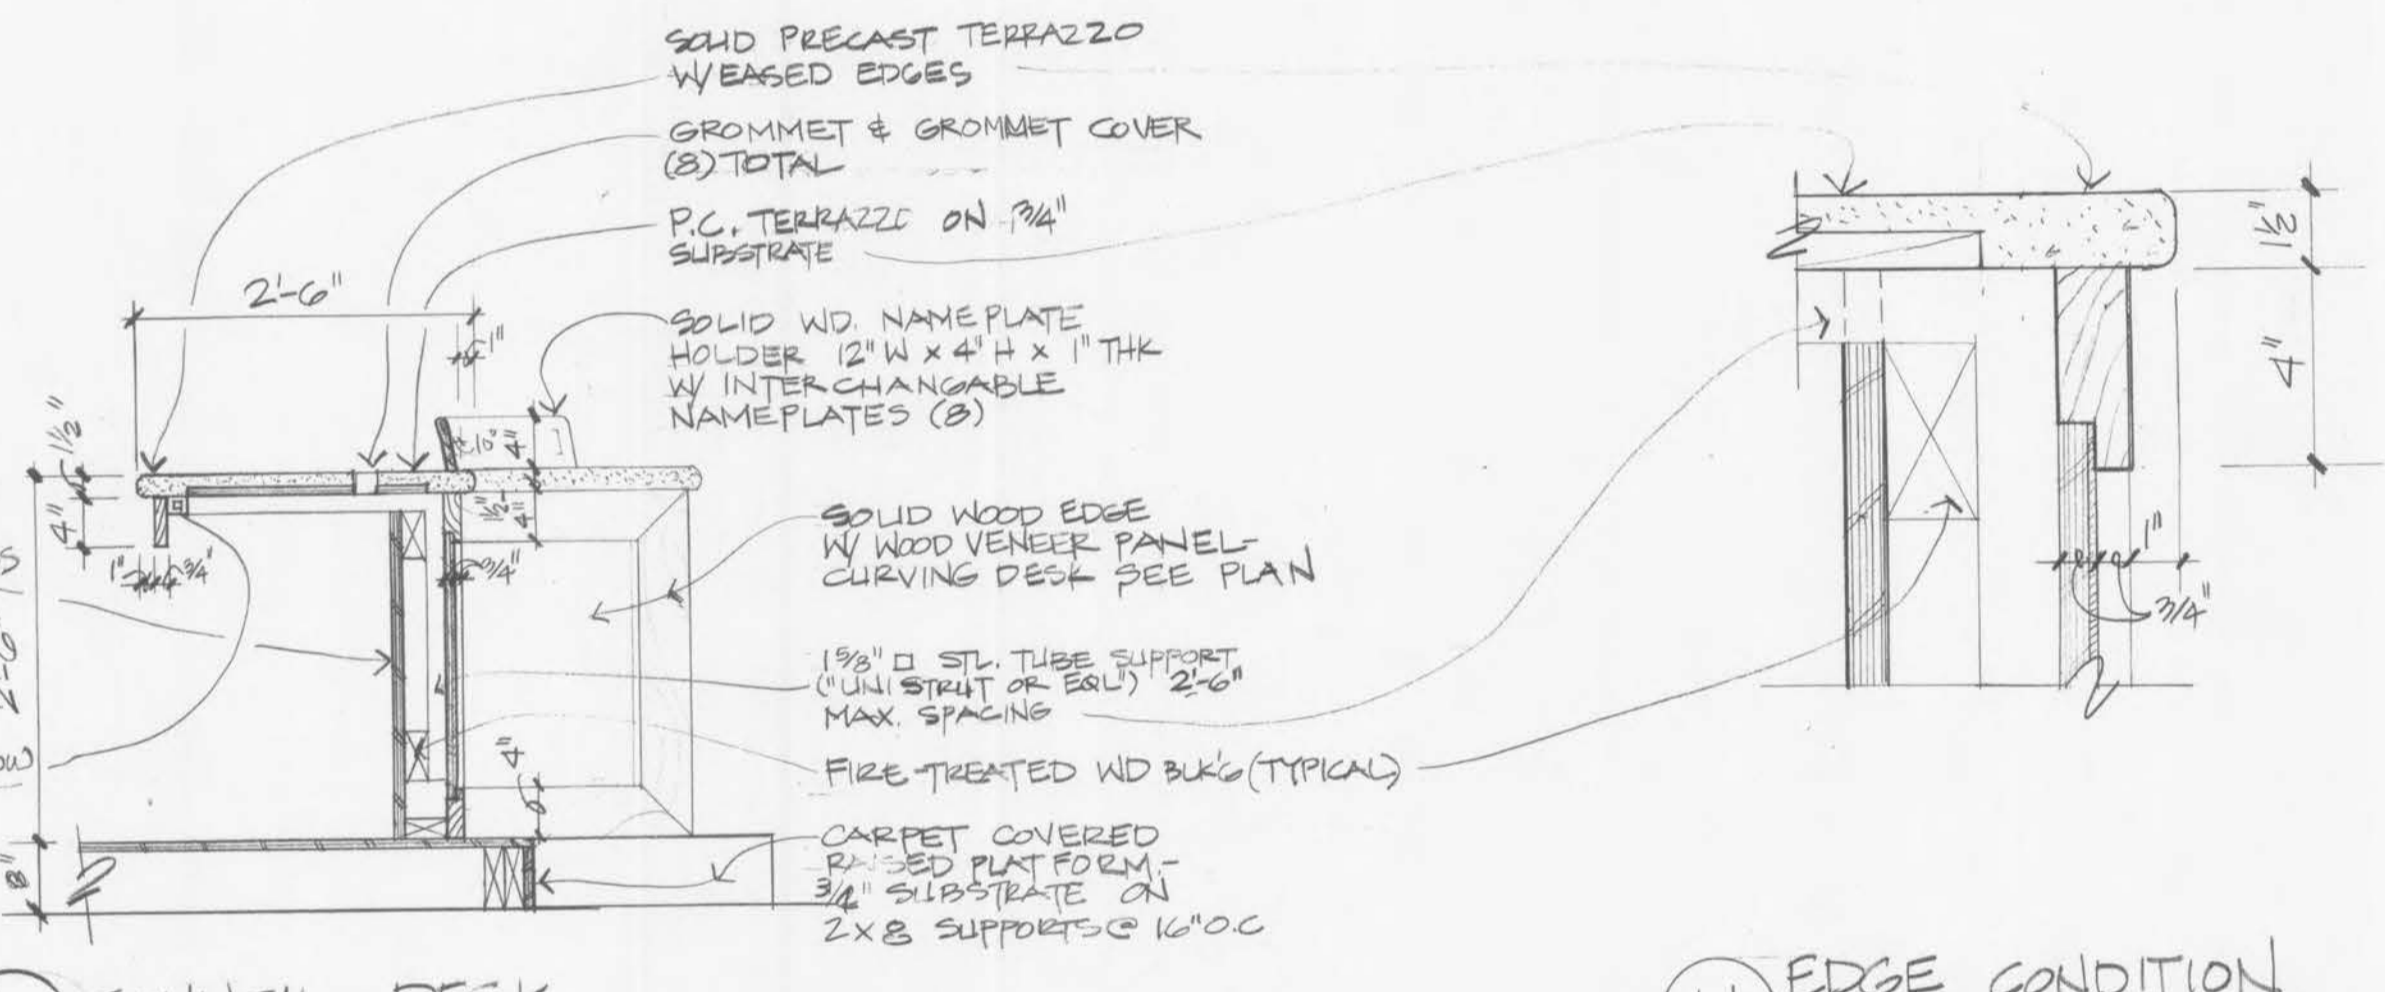 SOLID PRECAST TERRAZZO
W/EASED EDGES
GROMMET & GROMMET COVER
(8) TOTAL
P.C. TERRAZZO ON 3/4"
SUBSTRATE
SOLID WD. NAME PLATE
HOLDER 12" W x 4" H x 1" THK
W/ INTERCHANGABLE
NAMEPLATES (8)
SOLID WOOD EDGE
W/ WOOD VENEER PANEL-
CURVING DESK SEE PLAN
1 5/8" □ STL. TUBE SUPPORT
("UNISTRUT OR EQL") 2'-6"
MAX. SPACING
FIRE-TREATED WD BLK'G (TYPICAL)
CARPET COVERED
RAISED PLATFORM-
3/4" SUBSTRATE ON
2 X 8 SUPPORTS @ 16" O.C
2'-6"
1"
1 1/2"
4"
1"
3/4"
10°
4"
1 1/2"
4"
3/4"
4"
2'-6"
8"
1 1/2"
4"
1"
3/4"
DESK
EDGE CONDITION